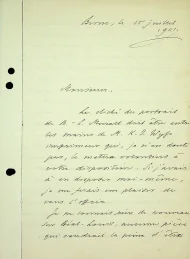 Berne, le 15 juillet
1901.
Monsieur,
Le cliché du portrait
de M. L. doit être entre
les mains de M. K. J. Wyss
imprimeur qui, je n'en doute
pas, le mettra volontiers à
votre disposition. Si j'avais
à en disposer moi-même,
je me ferais un plaisir de
vous l'offrir.
Je ne connais rien de nouveau
sur aucune pièce
qui vaudrait la peine d'être